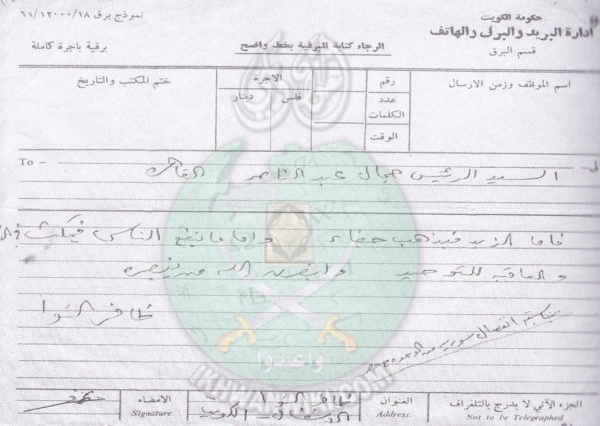 حكومة الكويت
ادارة البريد والبرق والهاتف
قسم البرق
نموذج برق ٦١/١٢٠٠٠/١٨
الرجاء كتابة البرقية بخط واضح
برقية باجرة كاملة
اسم الموظف وزمن الارسال
رقم
عدد الكلمات
الوقت
الاجرة
فلس
دينار
ختم المكتب والتاريخ
To –
السيد الرئيس جمال عبد الناصر القاهرة
فاما الزبد فيذهب جفاء واما ما ينفع الناس فيمكث في
الله من ينصره
بمناسبة انفصال سوريا
واعدوا
IKHWANWIKI.COM
الجزء الآتي لا يدرج بالتلغراف
Not to be Telegraphed
العنوان
Address.
الكويت
الامضاء
Signature.